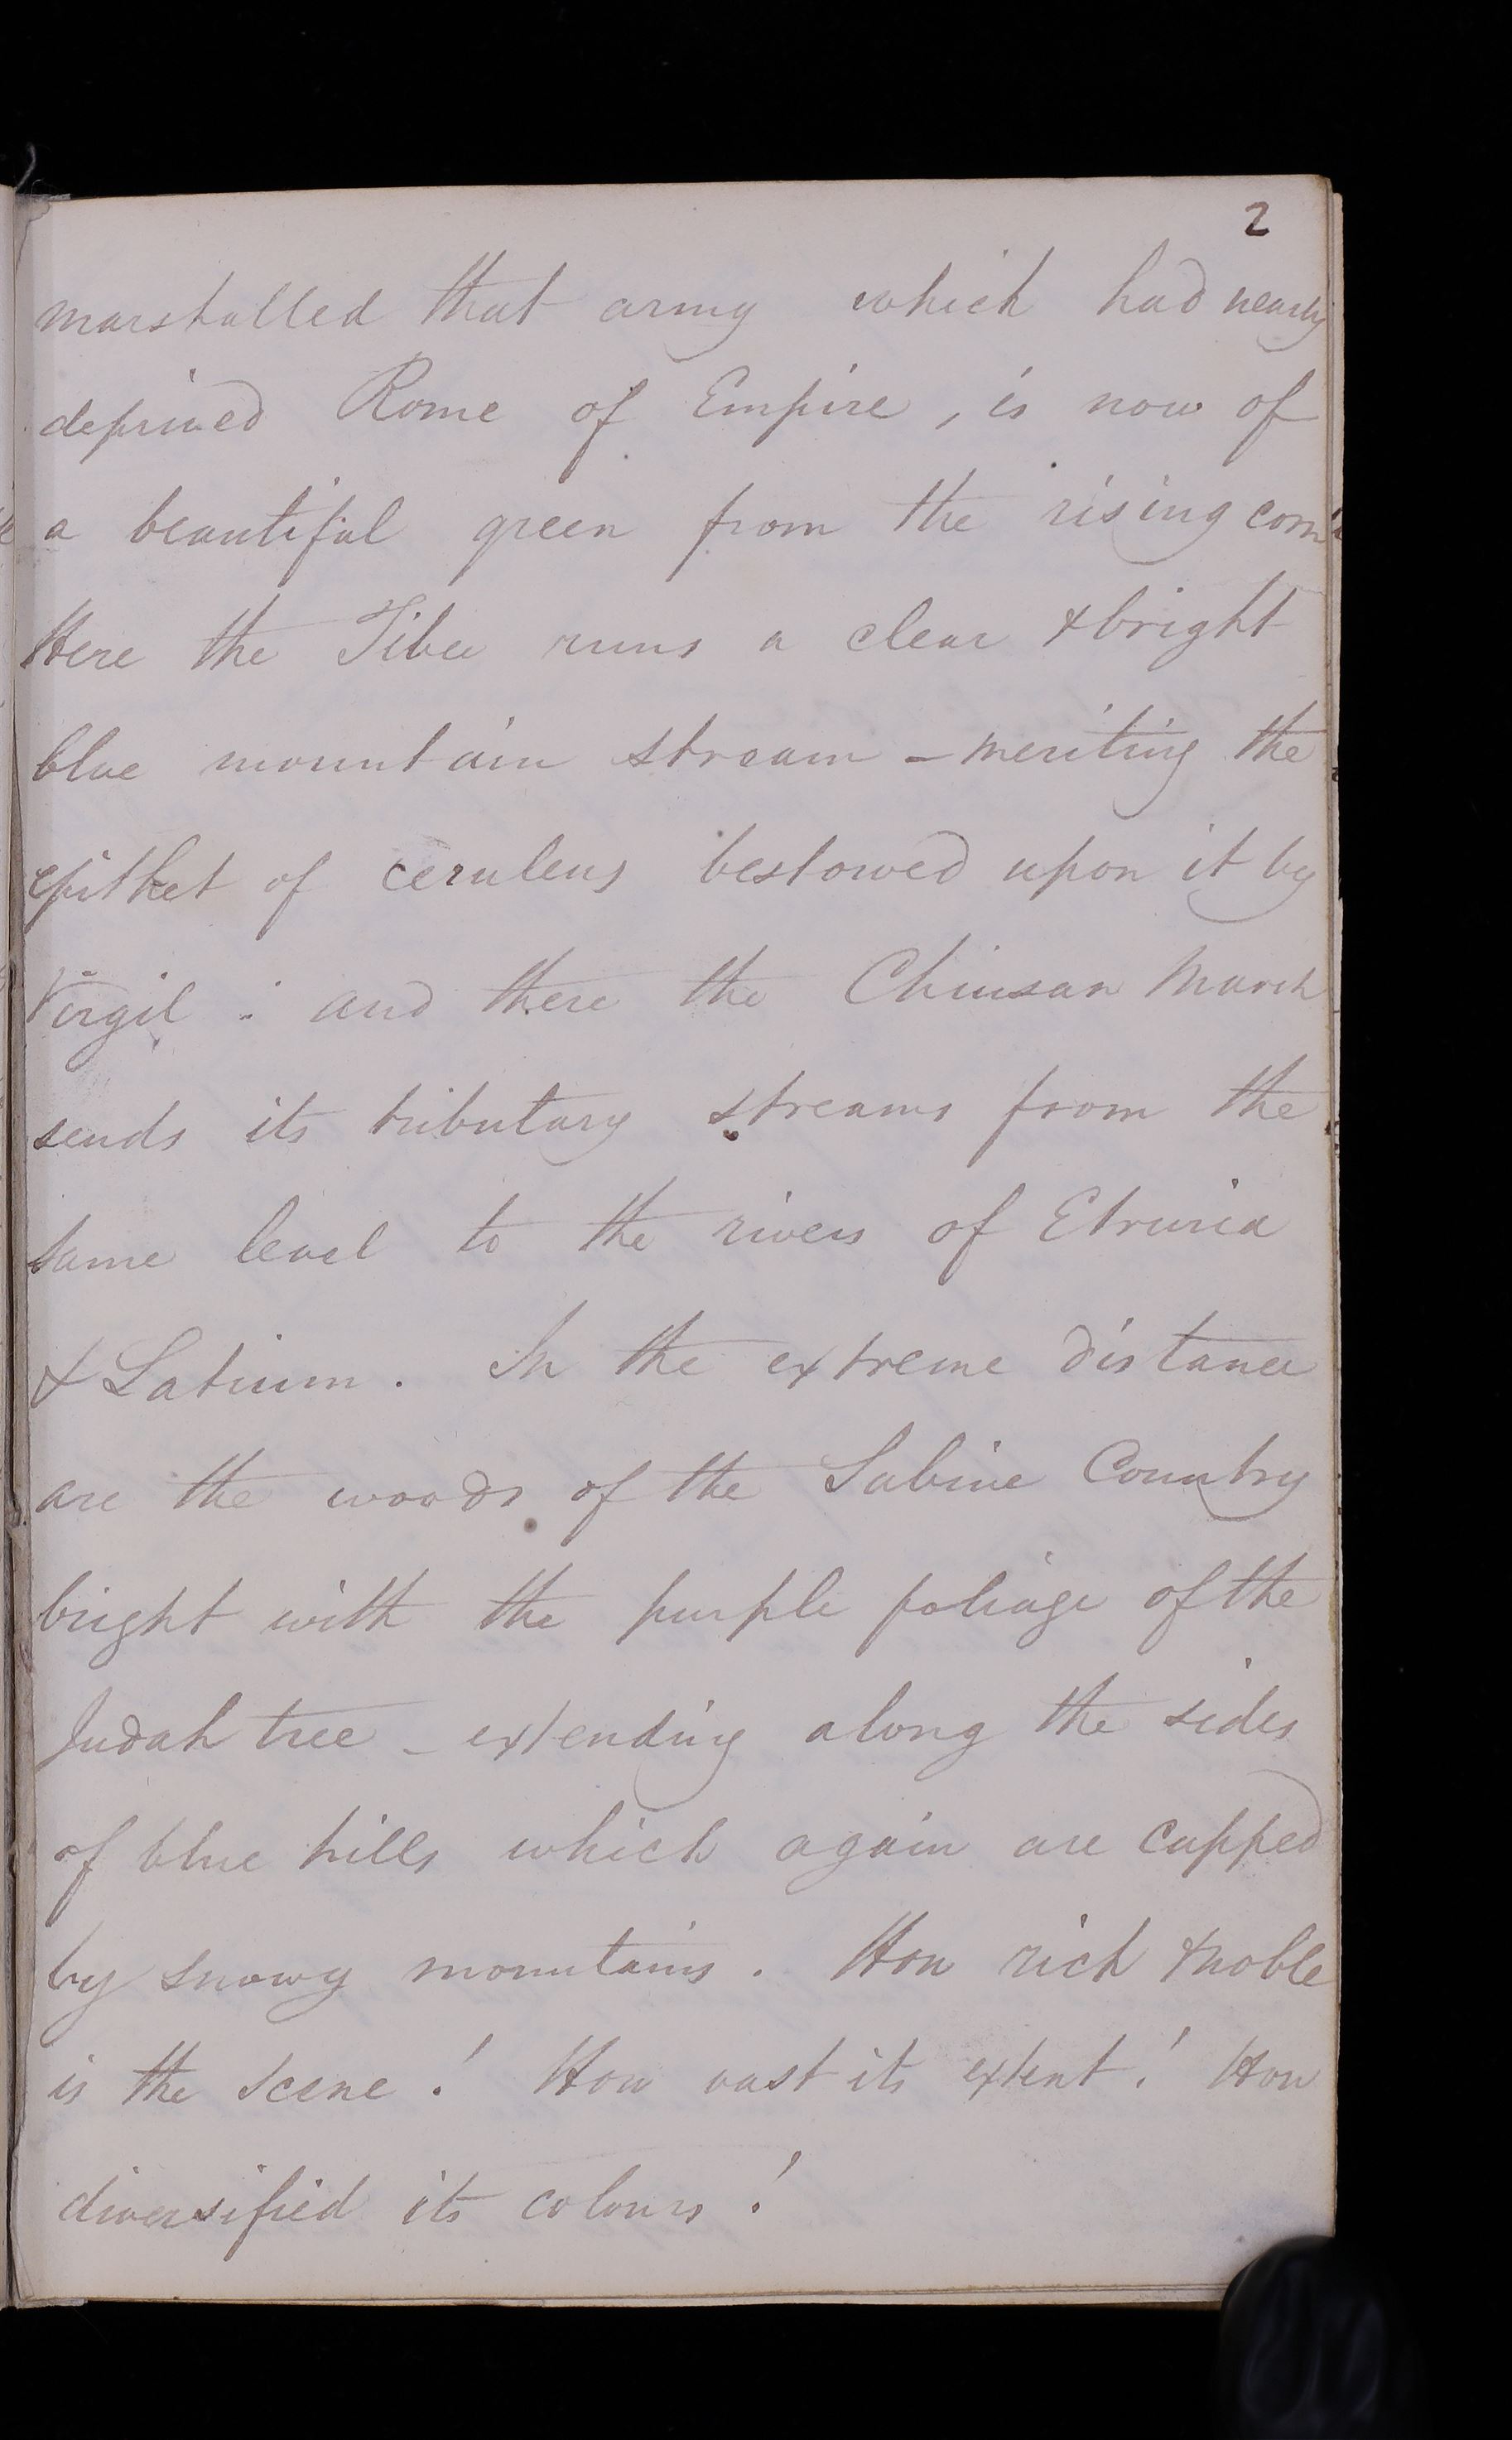 2
marshalled that army which had nearly
deprived Rome of Empire, is now of
a beautiful green from the rising corn
Here the Tiber runs a clear & bright
blue mountain stream – meriting the
epithet of ceruleus bestowed upon it by
Virgil : and there the Chiusan Marsh
sends its tributary streams from the
same level to the rivers of Etruria
& Latium. In the extreme distance
are the woods of the Sabine Country
bright with the purple foliage of the
Judah tree – extending along the sides
of blue hills which again are capped
by snowy mountains. How rich & noble
is the scene! How vast its extent! How
diversified its colours!